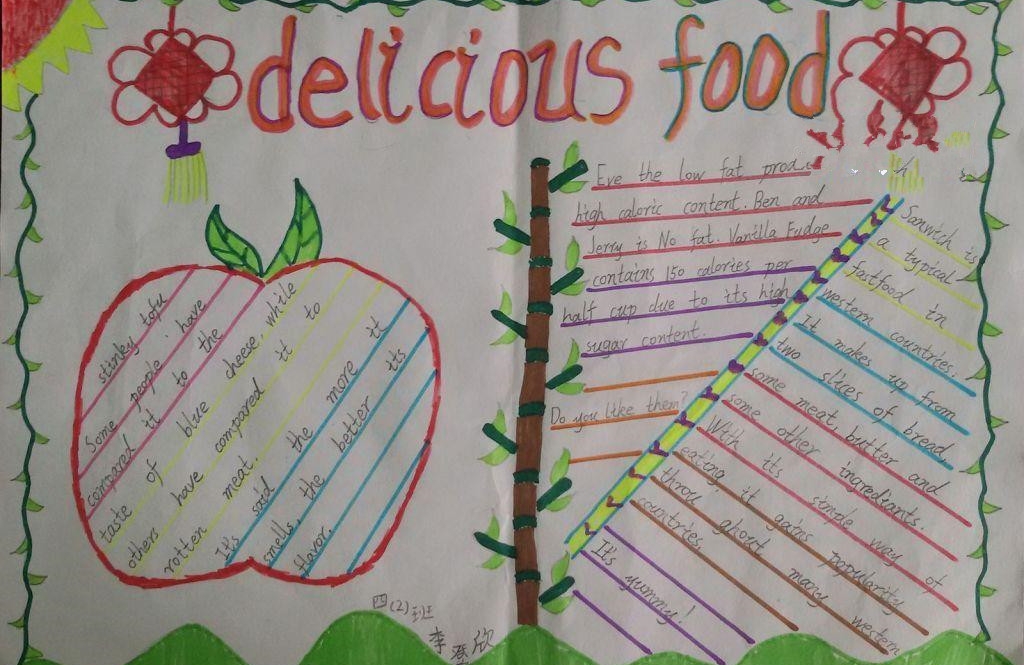 delicious food
stinky tofu
Some people have
compared it to the
taste of blue cheese, while
others have compared it to
rotten meat.
It's said the more it
smells, the better its
flavor.
Eve the low fat prod
high caloric content. Ben and
Jerry is No fat. Vanilla Fudge
contains 150 calories per
half cup due to its high
sugar content.
Do you like them?
Sanwich is
a typical
fastfood in
western countries.
It makes up from
two slices of bread,
some meat, butter and
some other ingrediants.
With its simple way of
eating, it gains popularity
throu ghout many western
countries.
It's yummy!
四(2)班
李 欣